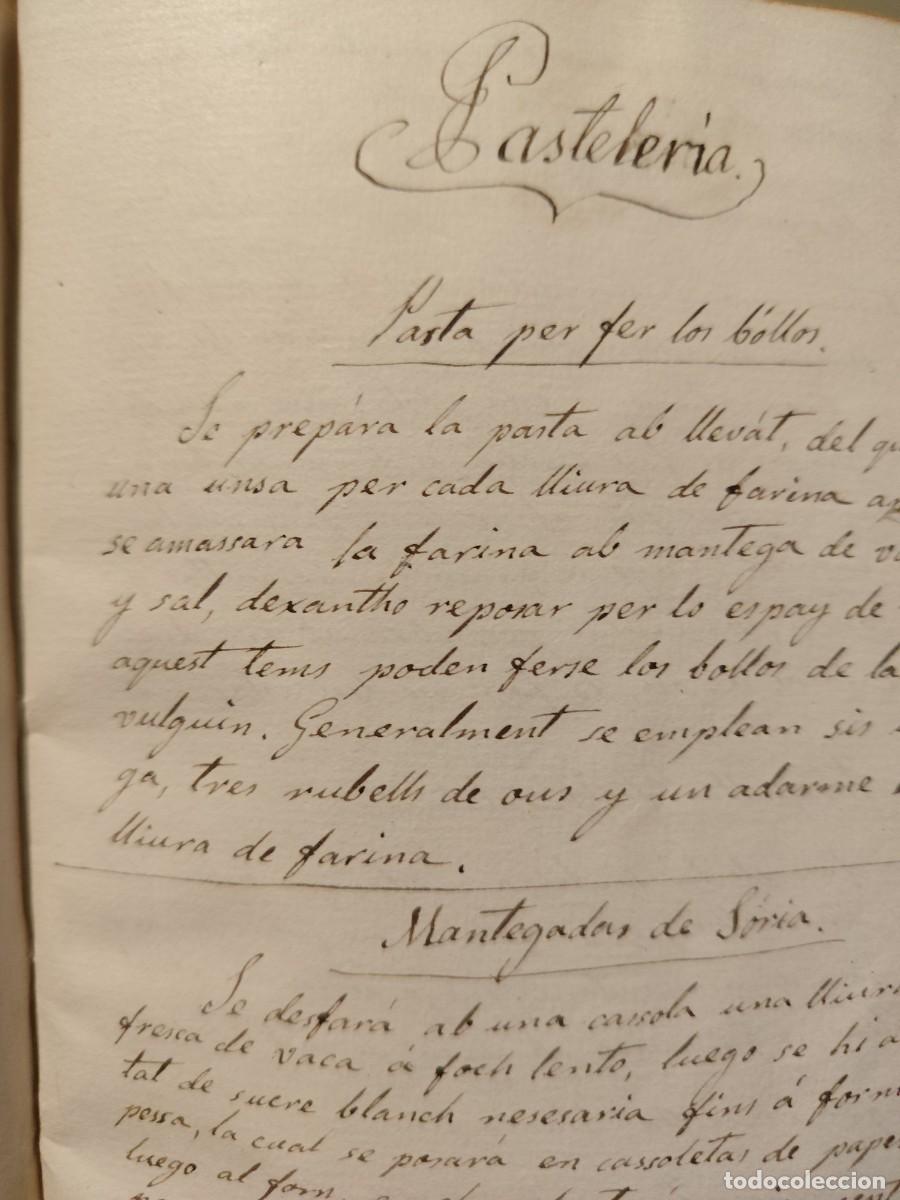 Pastelería.
Pasta per fer los bóllos.
Se prepára la pasta ab llevát, del
una unsa per cada lliura de farina
se amassara la farina ab mantega de
y sal, dexantho reposar per lo espay de
aquest tems poden ferse los bollos de la
vulguin. Generalment se emplean sis
ga, tres rubells de ous y un adarme
lliura de farina.
Mantegadas de Sória.
Se desfará ab una cassola una lliura
fresca de vaca á foch lento, luego se hi
tat de sucre blanch nesesaria fins á form
pessa, la cual se posará en cassoletas de paper
luego al forn
todocoleccion